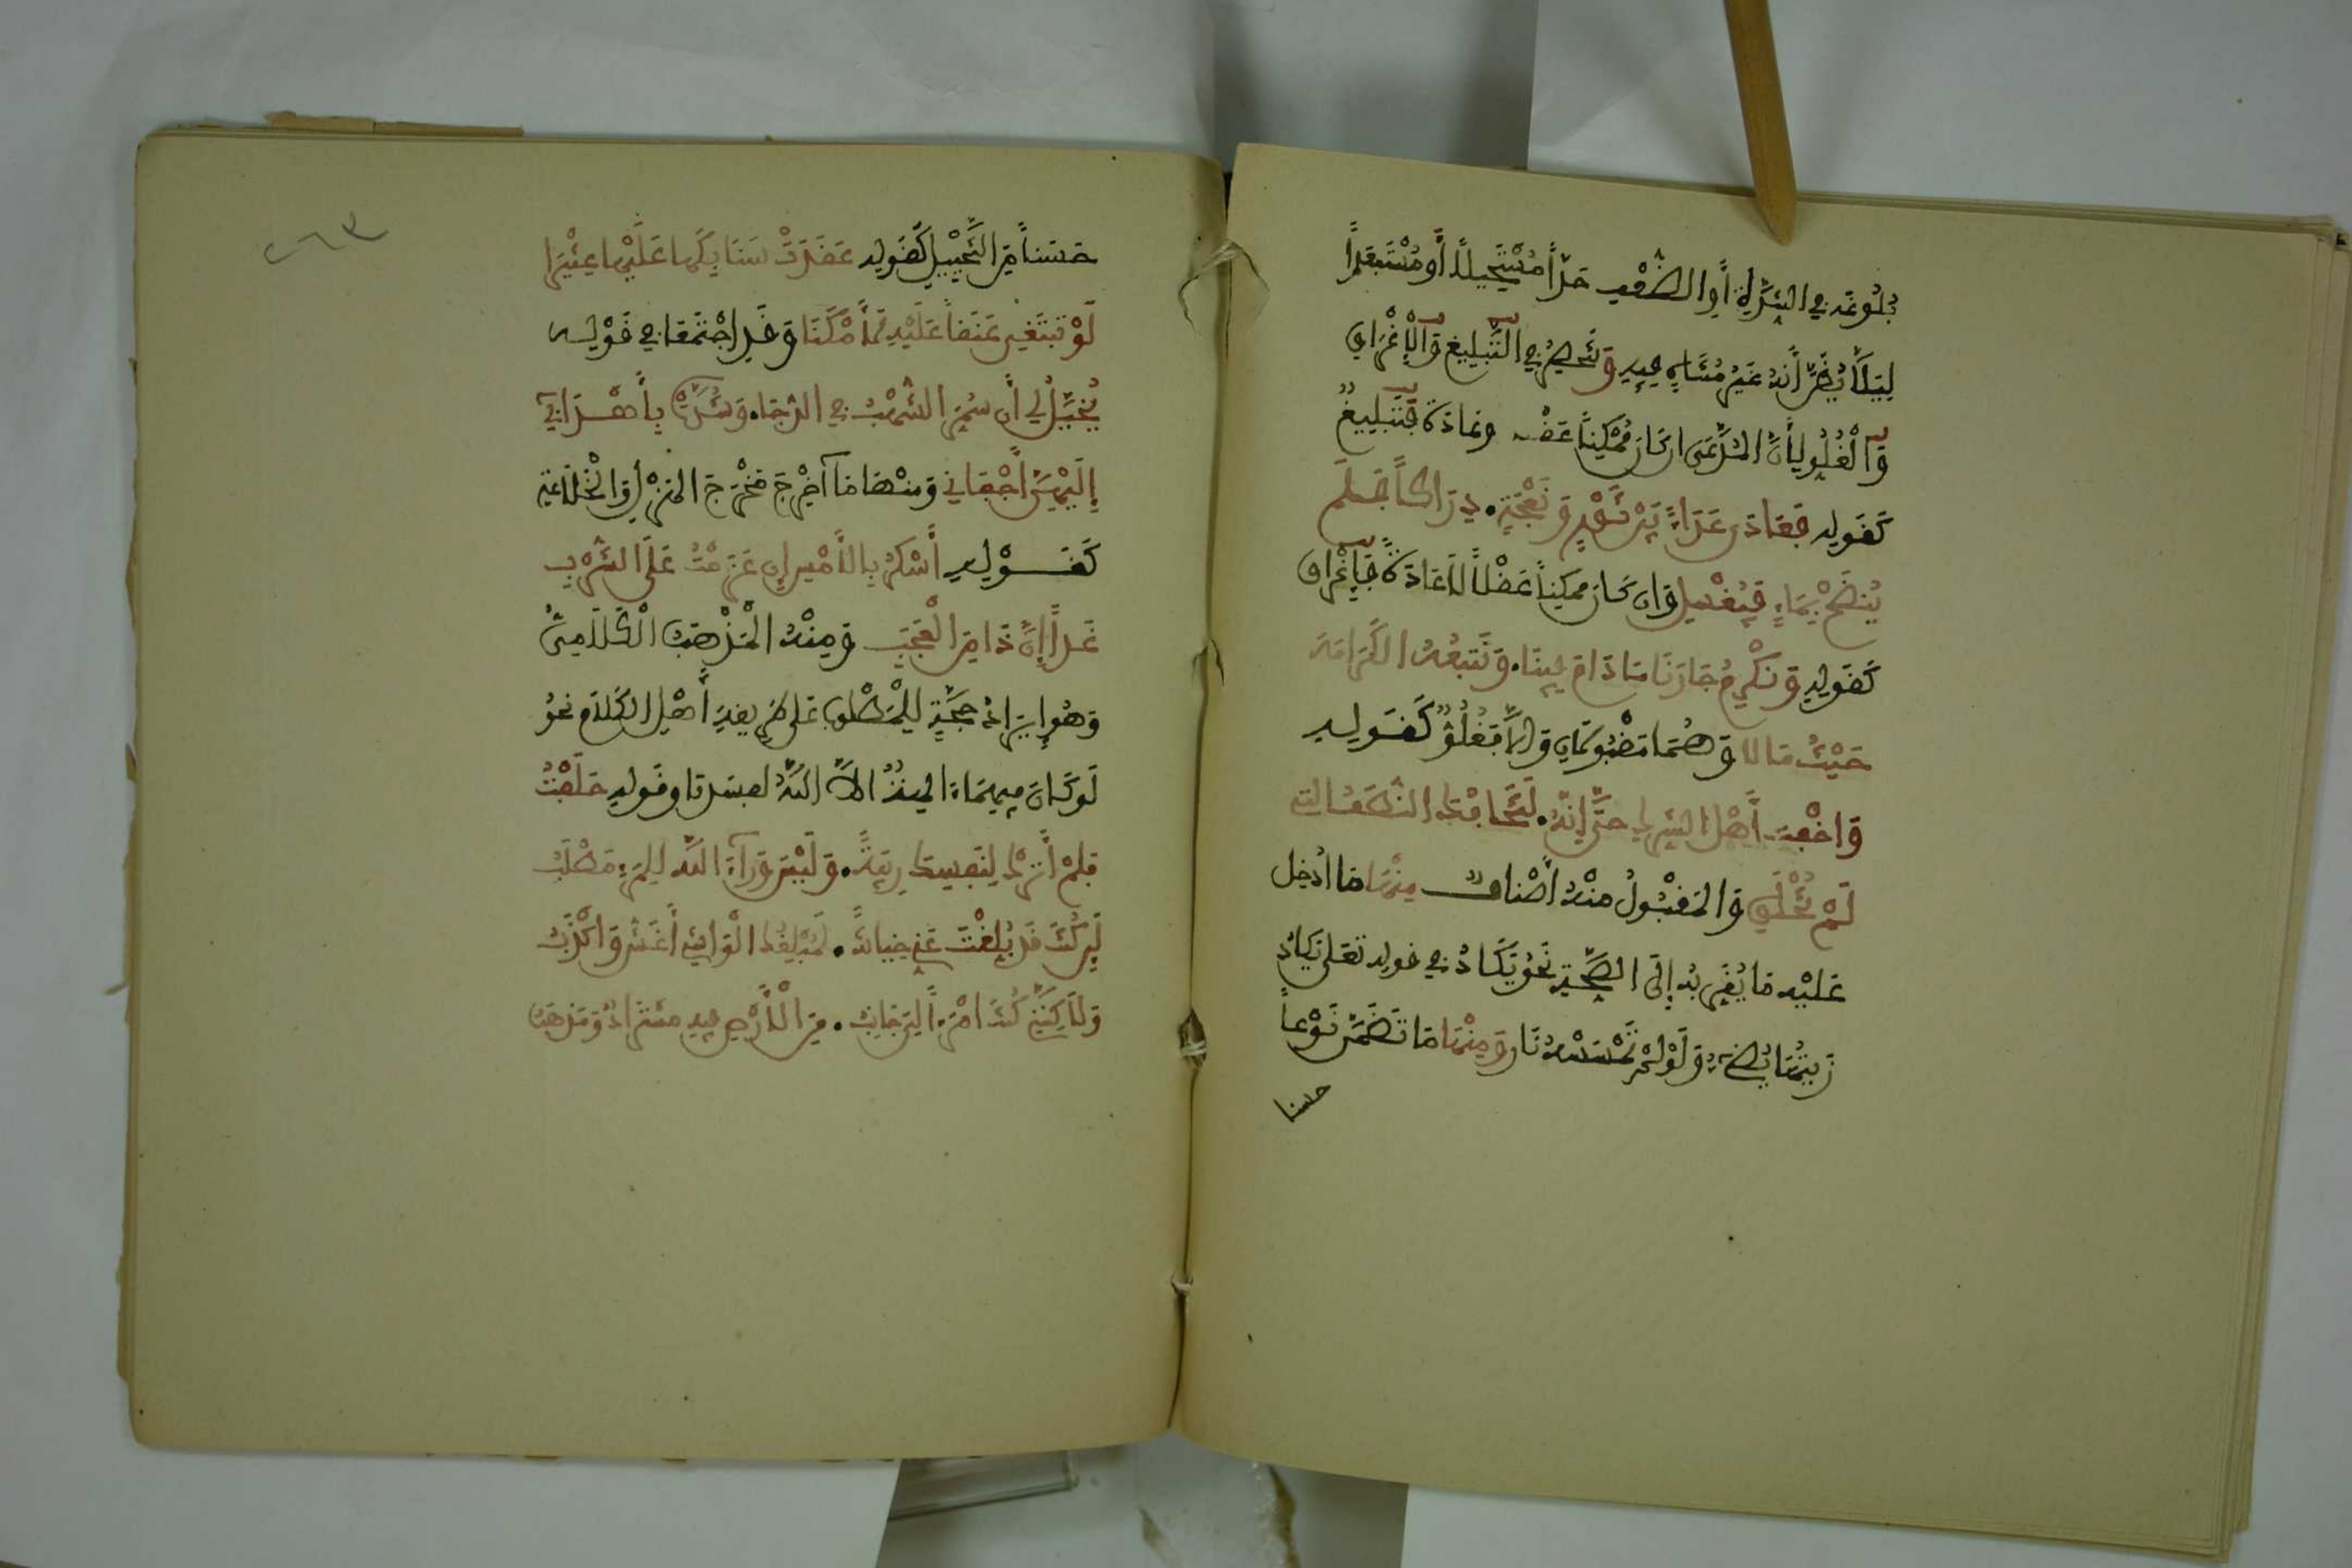 بُلُوغَه في الشِّدَّةِ أَوِ الضُّعْفِ حَدّاً مُسْتَحِيلاً أَوْ مُسْتَبْعَداً
لِيَلاَّ يُظَنَّ أَنَّهُ غَيْرُ مُتَنَاهٍ فِيهِ وَتَنْحَصِرُ فِي التَّبْلِيغِ وَالْإِغْرَاقِ
وَالْغُلُوِّ لِأَنَّ المُدَّعَى ان كَانَ مُمْكِناً عَقْلا وعَادَةً فَتَبْلِيغٌ
كَقَوْلِهِ فَعَادَى عَدَاءً بَيْنَ ثَوْرٍ وَنَعْجَةٍ. دِرَاكاً فَلَمْ
يُنْضَحْ بِمَاءٍ فَيُغْسَلِ وَان كَانَ مُمْكِناً عَقْلاً لاَ عَادَةً فَإِغْرَاق
كَقَوْلِهِ وَنُكْرِمُ جَارَنَا مَا دَامَ فِينَا. وَنُتْبِعُهُ الكَرَامَةَ
حَيْثُ مَالا وَهُمَا مَقْبُولَانِ وَإِلاَّ فَغُلُوٌّ كَقَوْلِهِ
وَاخَفْتَ أَهْلَ الشِّرْكِ حَتَّى إِنَّهُ. لَتَخَافُكَ النُّطَفُ التِي
لَمْ تُخْلَقِ وَالمَقْبُولُ مِنْهُ أَصْنَافٌ مِنْهَا مَا أُدْخِلَ
عَلَيْهِ مَا يُقَرِّبُهُ إِلَى الصِّحَّةِ نَحْوُ يَكَادُ فِي قَوْلِهِ تَعَلَى يَكَادُ
زَيْتُهَا يُضِيءُ وَلَوْ لَمْ تَمْسَسْهُ نَار وَمِنْهَا مَا تَضَمَّنَ نَوْعاً
حسنا
٢٦٣
حَسَناً مِنَ التَّخْيِيلِ كَقَوْلِهِ عَقَدَتْ سَنَابِكُهَا عَلَيْهَا عِثْيَرَا
لَوْ تَبْتَغِي عَنَقاً عَلَيْهِ لَأَمْكَنَا وَقَدِ اجْتَمَعَا فِي قَوْلِهِ
يُخَيَّلُ لِي أَن سُمِّرَ الشُّهْبُ فِي الدُّجَا. وَشُدَّتْ بِأَهْدَابِي
إِلَيْهِنَّ أَجْفَانِي وَمِنْهَا مَا أُخْرِجَ مَخْرَجَ الهَزْلِ وَالْخَلَاعَةِ
كَقَوْلِهِ أَسْكَرُ بِالأَمْسِ إِن عَزَمْتُ عَلَى الشُّرْبِ
غَداً إِنَّ ذَا مِنَ الْعَجَبِ وَمِنْهُ الْمَذْهَبُ الْكَلَامِيُّ
وَهُوَ إِيرَادُ حُجَّةٍ لِلْمَطْلُوبِ عَلَى طَرِيقَةِ أَهْلِ الكَلَامِ نَحْوُ
لَوْ كَانَ فِيهِمَا ءَالِهَةٌ إِلاَّ اللَّهُ لَفَسَدَتَا وَقَوْلِهِ حَلَفْتُ
فَلَمْ أَتْرُكْ لِنَفْسِكَ رِيبَةً. وَلَيْسَ وَرَآءَ اللَّهِ لِلْمَرْءِ مَطْلَبُ
لَئِن كُنتَ قَدْ بُلِّغْتَ عَنِّي خِيَانَةً. لَمُبْلِغُكَ الْوَاشِي أَغَشُّ وَأَكْذَبُ
وَلَاكِنَّنِي كُنْتُ امْرَءاً لِيَ جَانِبٌ. مِنَ الْأَرْضِ فِيهِ مُسْتَرَادٌ وَمَذْهَبُ